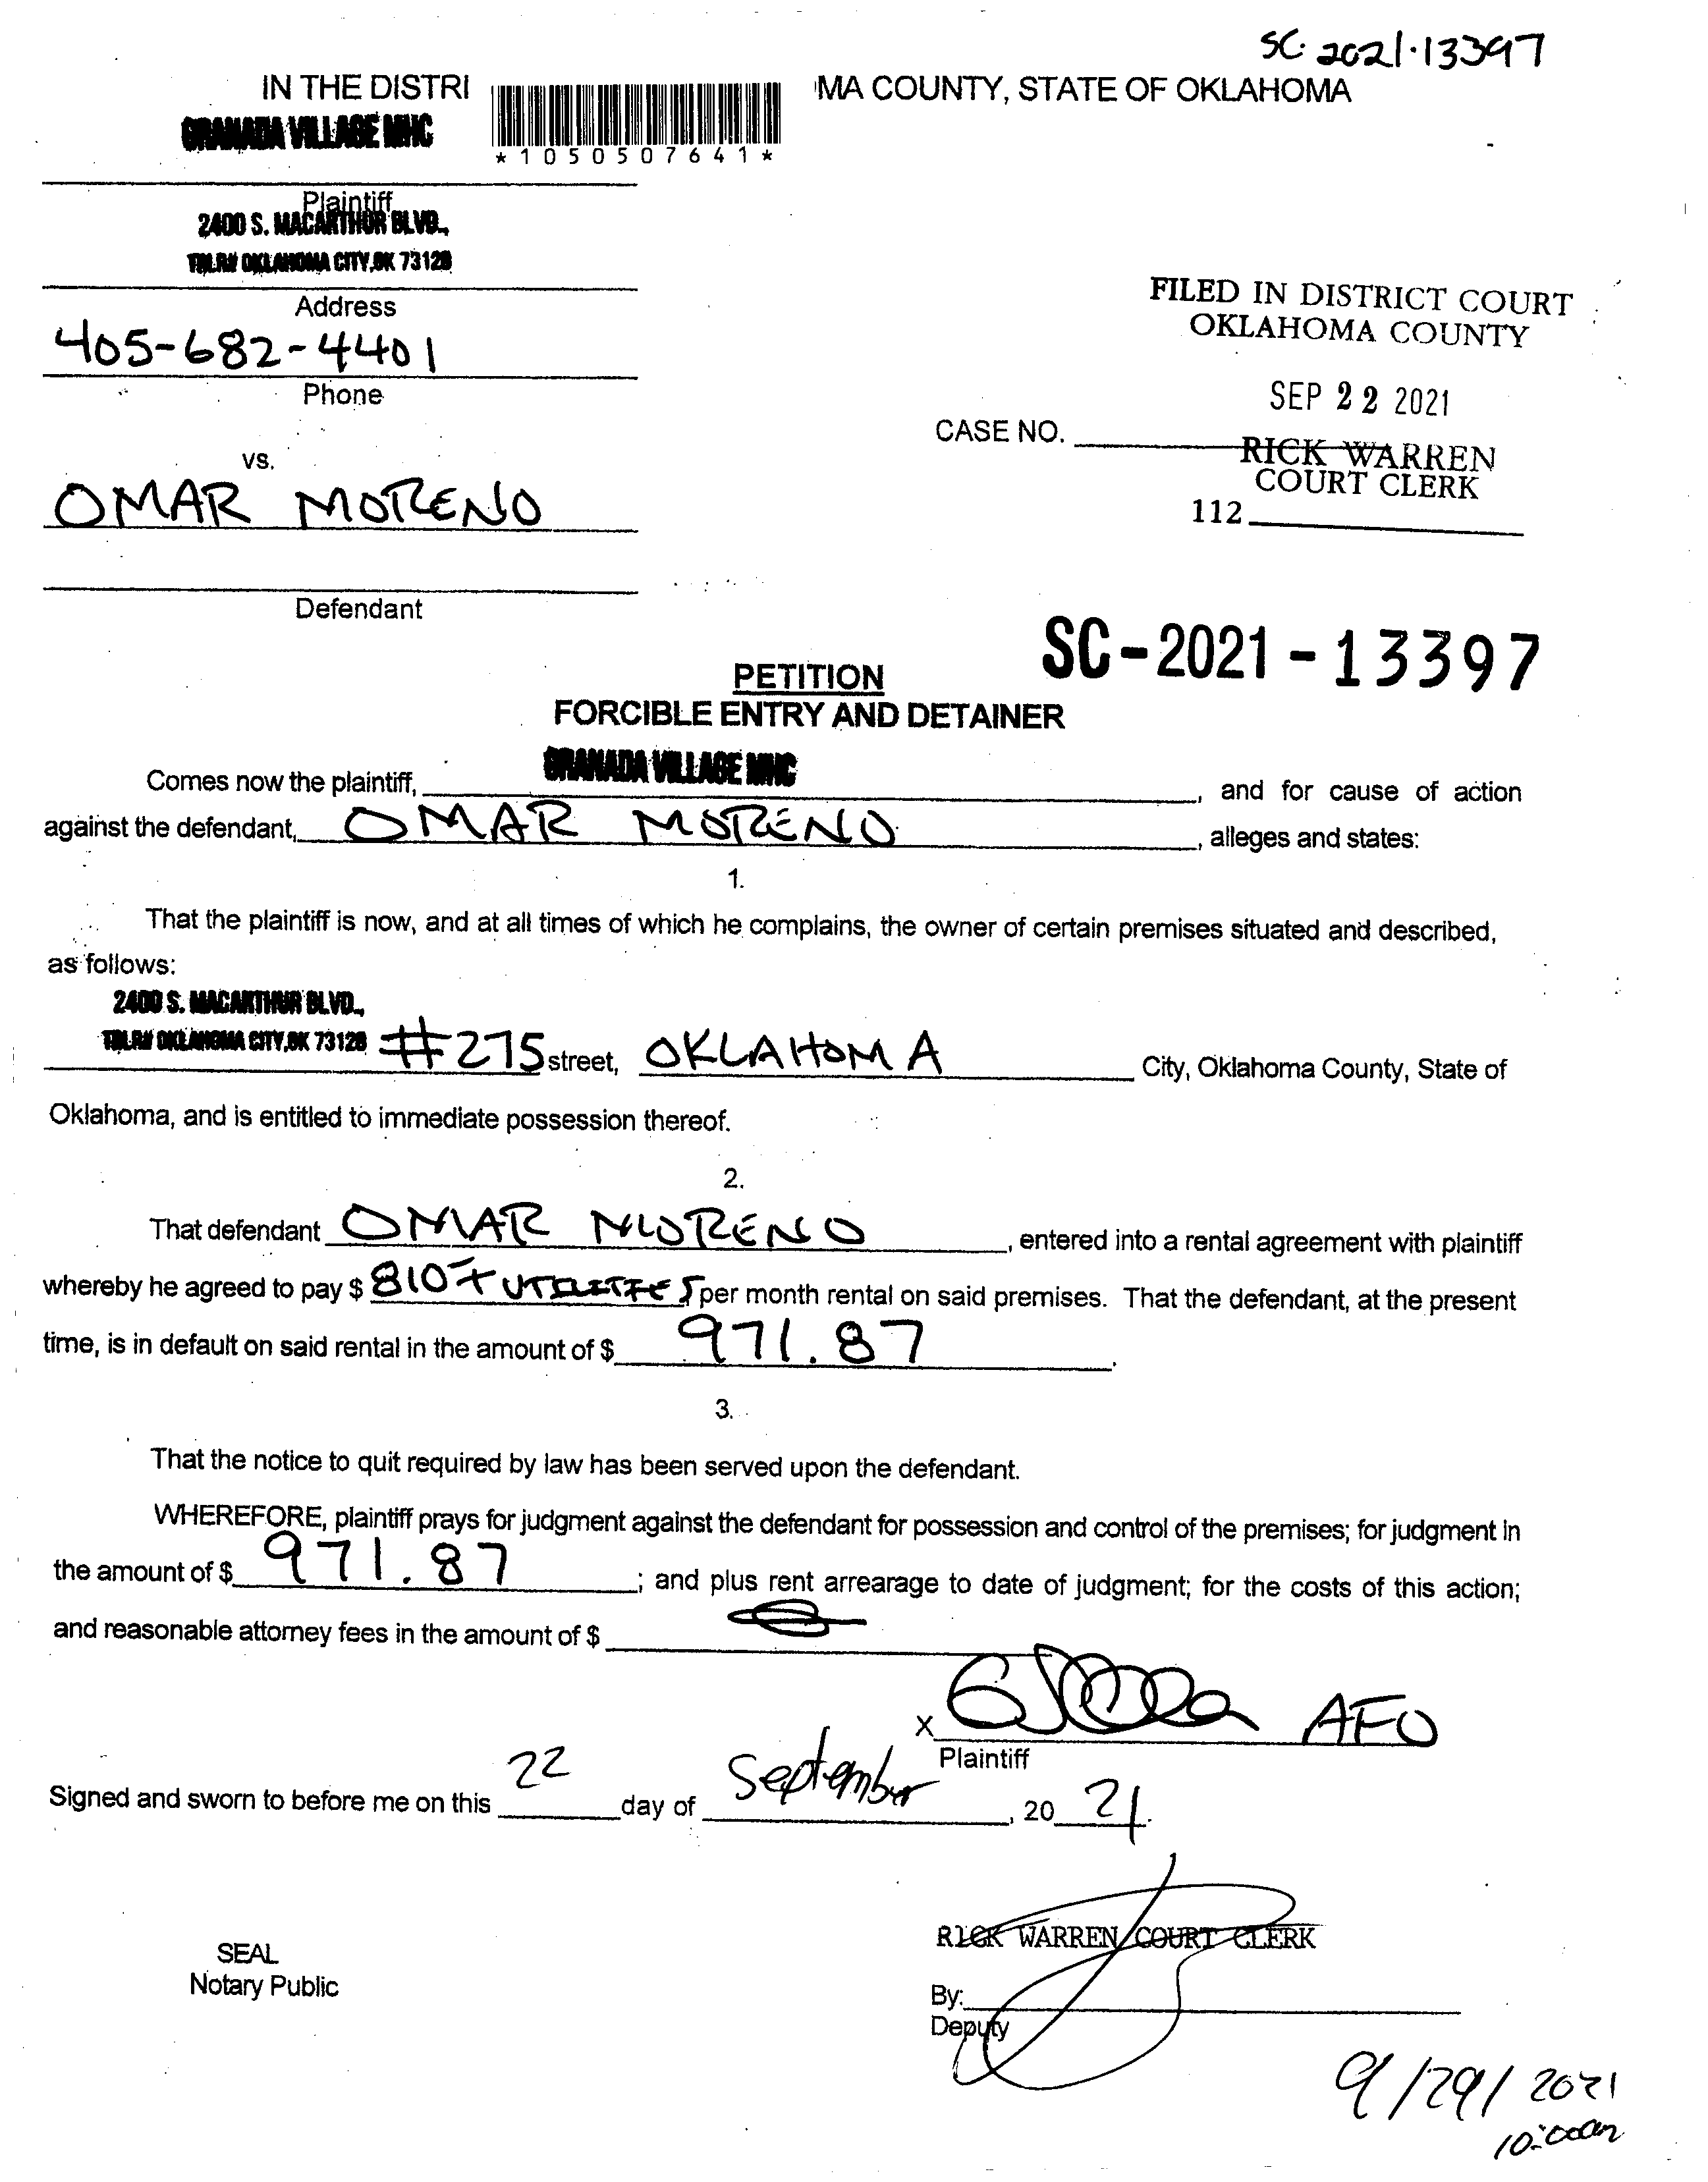 SC. 2021-13397
IN THE DISTRI MA COUNTY, STATE OF OKLAHOMA
GRANADA VILLAGE MHC
*1050507641*
Plaintiff
2400 S. MACARTHUR BLVD.,
TRLR# OKLAHOMA CITY, OK 73128
Address
405-682-4401
Phone
FILED IN DISTRICT COURT
OKLAHOMA COUNTY
SEP 22 2021
CASE NO.
RICK WARREN
COURT CLERK
112
vs.
OMAR MORENO
Defendant
SC-2021-13397
PETITION
FORCIBLE ENTRY AND DETAINER
GRANADA VILLAGE MHC
Comes now the plaintiff, , and for cause of action
against the defendant, OMAR MORENO , alleges and states:
1.
That the plaintiff is now, and at all times of which he complains, the owner of certain premises situated and described,
as follows:
2400 S. MACARTHUR BLVD.,
TRLR# OKLAHOMA CITY, OK 73128 #275 street, OKLAHOMA City, Oklahoma County, State of
Oklahoma, and is entitled to immediate possession thereof.
2.
That defendant OMAR MORENO , entered into a rental agreement with plaintiff
whereby he agreed to pay $ 810 + UTILITIES per month rental on said premises. That the defendant, at the present
time, is in default on said rental in the amount of $ 971.87 .
3.
That the notice to quit required by law has been served upon the defendant.
WHEREFORE, plaintiff prays for judgment against the defendant for possession and control of the premises; for judgment in
the amount of $ 971.87 ; and plus rent arrearage to date of judgment; for the costs of this action;
and reasonable attorney fees in the amount of $
X AFO
Plaintiff
Signed and sworn to before me on this 22 day of September , 20 21.
RICK WARREN COURT CLERK
SEAL
Notary Public
By:
Deputy
9/29/2021
10:00am